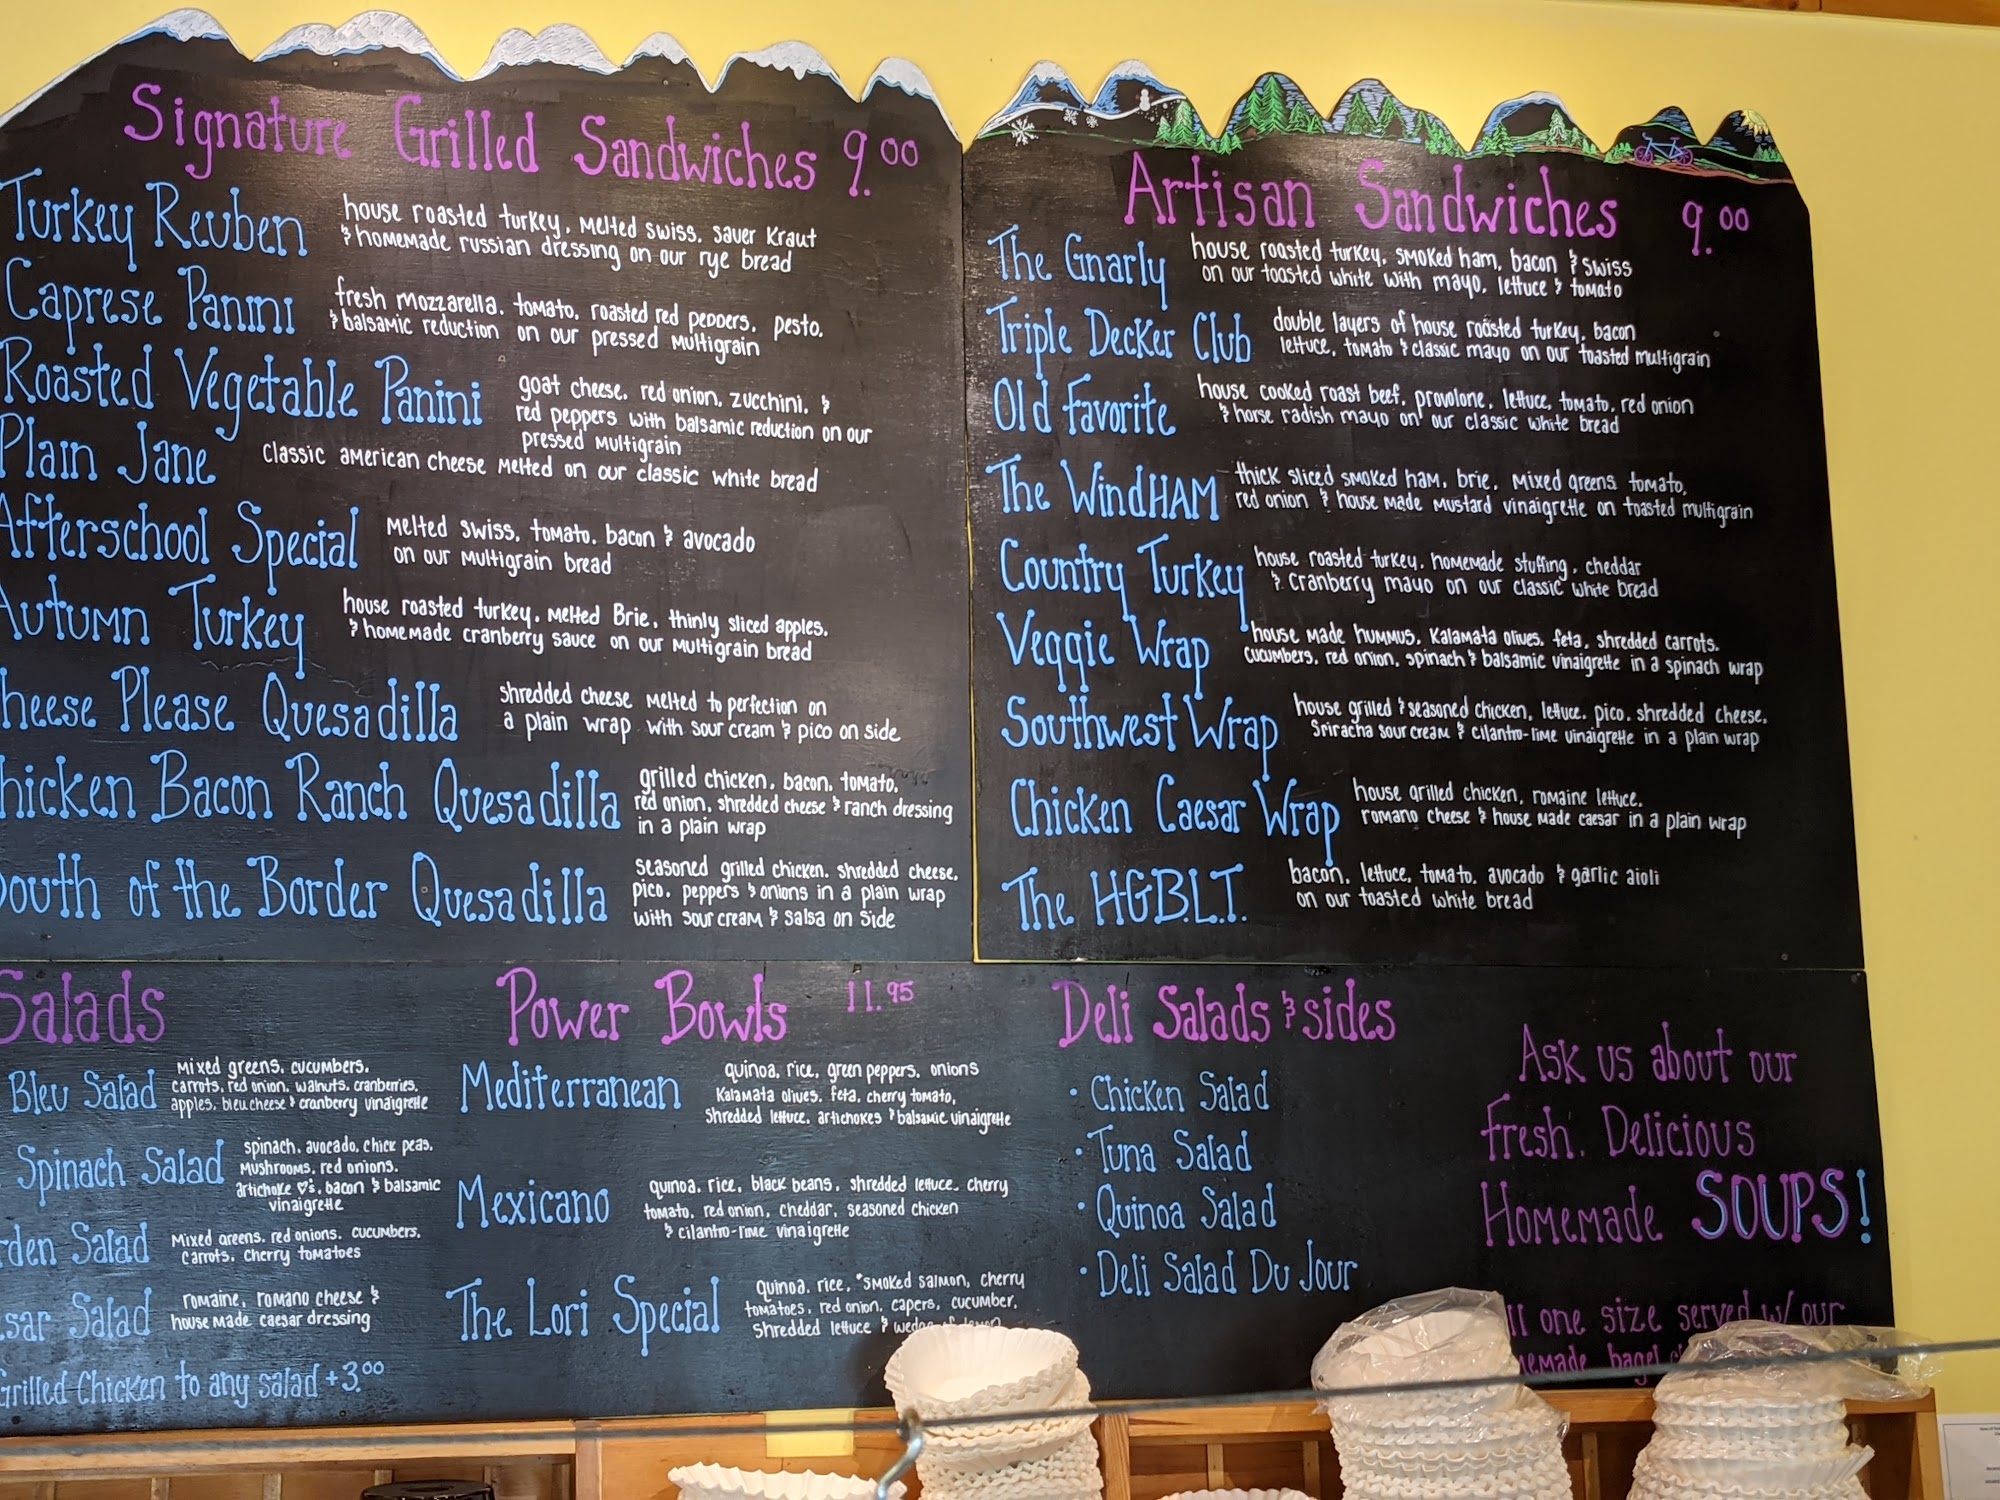 Signature Grilled Sandwiches 9.00
Turkey Reuben
house roasted turkey, melted swiss, sauer kraut
& homemade russian dressing on our rye bread
Caprese Panini
fresh mozzarella, tomato, roasted red peppers, pesto,
& balsamic reduction on our pressed multigrain
Roasted Vegetable Panini
goat cheese, red onion, zucchini, &
red peppers with balsamic reduction on our
pressed multigrain
Plain Jane
classic american cheese melted on our classic white bread
Afterschool Special
melted swiss, tomato, bacon & avocado
on our multigrain bread
Autumn Turkey
house roasted turkey, melted Brie, thinly sliced apples,
& homemade cranberry sauce on our multigrain bread
heese Please Quesadilla
shredded cheese melted to perfection on
a plain wrap with sour cream & pico on side
hicken Bacon Ranch Quesadilla
grilled chicken, bacon, tomato,
red onion, shredded cheese & ranch dressing
in a plain wrap
South of the Border Quesadilla
seasoned grilled chicken, shredded cheese,
pico, peppers & onions in a plain wrap
with sour cream & salsa on side
Artisan Sandwiches 9.00
The Gnarly
house roasted turkey, smoked ham, bacon & swiss
on our toasted white with mayo, lettuce & tomato
Triple Decker Club
double layers of house roasted turkey, bacon
lettuce, tomato & classic mayo on our toasted multigrain
Old Favorite
house cooked roast beef, provolone, lettuce, tomato, red onion
& horse radish mayo on our classic white bread
The WindHAM
thick sliced smoked ham, brie, mixed greens tomato,
red onion & house made mustard vinaigrette on toasted multigrain
Country Turkey
house roasted turkey, homemade stuffing, cheddar
& cranberry mayo on our classic white bread
Veggie Wrap
house made hummus, Kalamata olives, feta, shredded carrots,
cucumbers, red onion, spinach & balsamic vinaigrette in a spinach wrap
Southwest Wrap
house grilled & seasoned chicken, lettuce, pico, shredded cheese,
Sriracha sour cream & cilantro-lime vinaigrette in a plain wrap
Chicken Caesar Wrap
house grilled chicken, romaine lettuce,
romano cheese & house made caesar in a plain wrap
The H.G.B.L.T.
bacon, lettuce, tomato, avocado & garlic aioli
on our toasted white bread
Salads
Bleu Salad
mixed greens, cucumbers,
carrots, red onion, walnuts, cranberries,
apples, bleu cheese & cranberry vinaigrette
Spinach Salad
spinach, avocado, chick peas,
mushrooms, red onions,
artichoke ♡'s, bacon & balsamic
vinaigrette
rden Salad
mixed greens, red onions, cucumbers,
carrots, cherry tomatoes
sar Salad
romaine, romano cheese &
house made caesar dressing
Grilled Chicken to any salad +3.00
Power Bowls 11.95
Mediterranean
quinoa, rice, green peppers, onions
Kalamata olives, feta, cherry tomato,
shredded lettuce, artichokes & balsamic vinaigrette
Mexicano
quinoa, rice, black beans, shredded lettuce, cherry
tomato, red onion, cheddar, seasoned chicken
& cilantro-lime vinaigrette
The Lori Special
quinoa, rice, *smoked salmon, cherry
tomatoes, red onion, capers, cucumber,
shredded lettuce & wedge of lemon
Deli Salads & sides
· Chicken Salad
· Tuna Salad
· Quinoa Salad
· Deli Salad Du Jour
Ask us about our
fresh, Delicious
Homemade SOUPS!
ll one size served w/ our
memade bagel